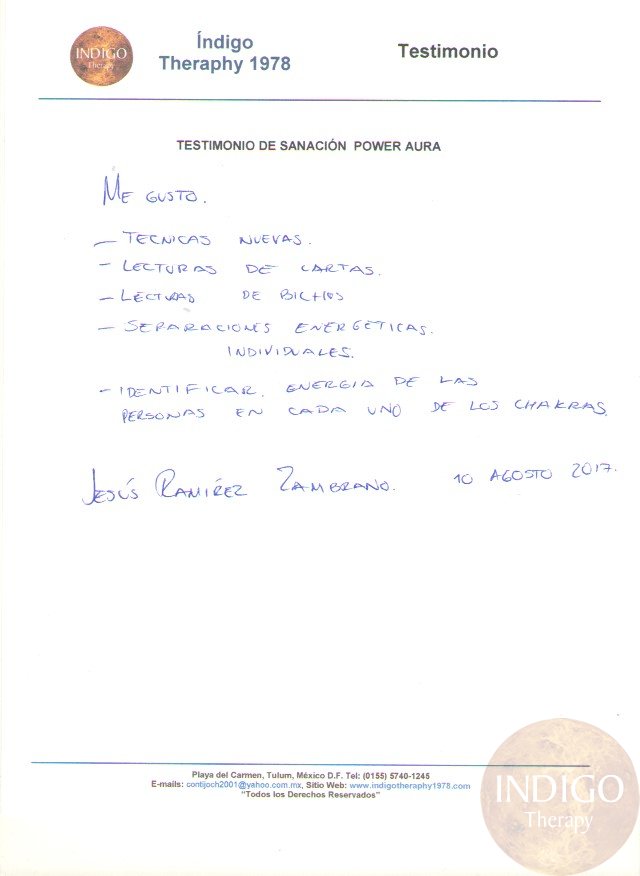 INDIGO
Therapy
Índigo
Theraphy 1978
Testimonio
TESTIMONIO DE SANACIÓN POWER AURA
ME GUSTO.
- TECNICAS NUEVAS.
- LECTURAS DE CARTAS.
- LECTURAS DE BICHOS
- SEPARACIONES ENERGÉTICAS.
INDIVIDUALES.
- IDENTIFICAR. ENERGIA DE LAS
PERSONAS EN CADA UNO DE LOS CHAKRAS.
JESÚS RAMIREZ ZAMBRANO. 10 AGOSTO 2017.
Playa del Carmen, Tulum, México D.F. Tel: (0155) 5740-1245
E-mails: contijoch2001@yahoo.com.mx, Sitio Web: www.indigotheraphy1978.com
"Todos los Derechos Reservados"
INDIGO
Therapy